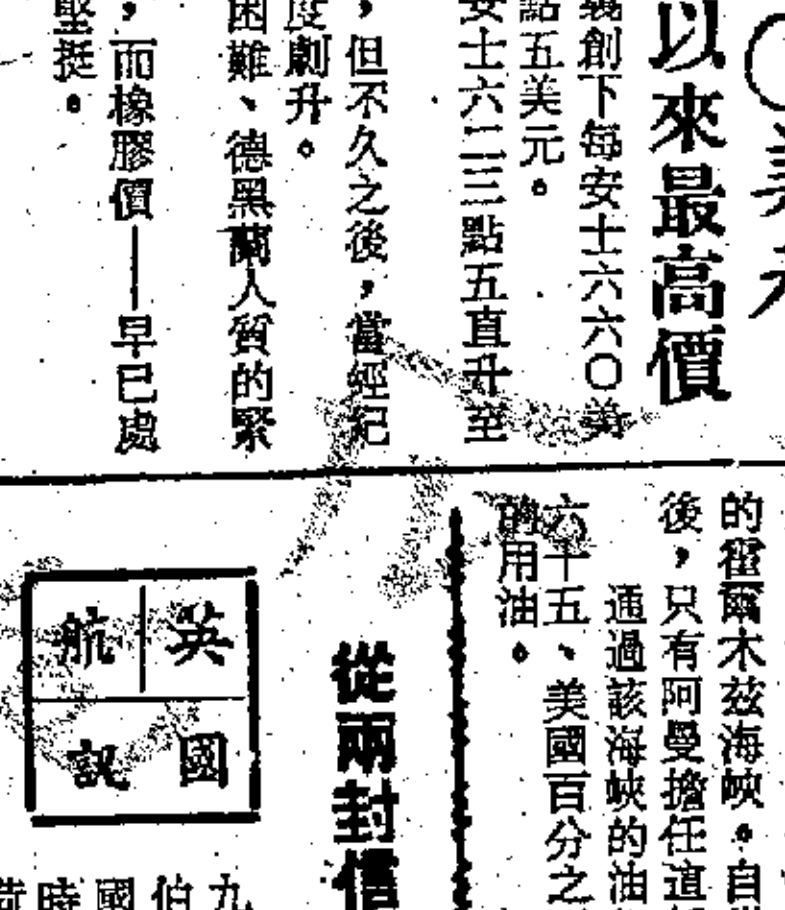 以來最高價
義創下每安士六六〇美
點五美元。
安士六二三點五直升至
，但不久之後，當經紀
度劇升。
困難、德黑蘭人質的緊
，而橡膠價——早已處
堅挺。
的霍爾木茲海峽。自
後，只有阿曼擔任這
通過該海峽的油
六十五、美國百分之
的用油。
從兩封信
英國
航訊
九
伯
國
時